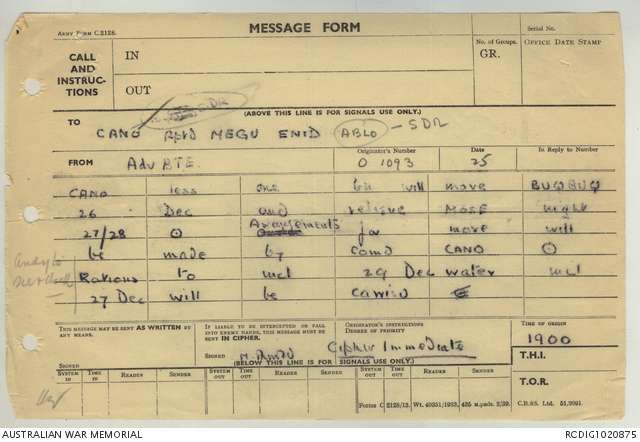 ARMY FORM C.2128.
MESSAGE FORM
Serial No.
CALL AND INSTRUCTIONS
IN
OUT
No. of Groups.
GR.
OFFICE DATE STAMP
(ABOVE THIS LINE IS FOR SIGNALS USE ONLY.)
TO
CANO MEGU ENID ABLO - SDR
FROM
Adv BTE
Originator's Number
O 1093
Date
25
In Reply to Number
CANO less one bn will move BUQBUQ
26 Dec and relieve MOSE night
27/28 ⊙ Arrangements for move will
be made by comd CANO ⊙
Rations to incl 29 Dec water incl
27 Dec will be carried
THIS MESSAGE MAY BE SENT AS WRITTEN BY ANY MEANS.
IF LIABLE TO BE INTERCEPTED OR FALL INTO ENEMY HANDS, THIS MESSAGE MUST BE SENT IN CIPHER.
ORIGINATOR'S INSTRUCTIONS
DEGREE OF PRIORITY
Cipher Immediate
TIME OF ORIGIN
1900
SIGNED
SIGNED
(BELOW THIS LINE IS FOR SIGNALS USE ONLY.)
T.H.I.
T.O.R.
SYSTEM IN
TIME IN
READER
SENDER
SYSTEM OUT
TIME OUT
READER
SENDER
SYSTEM OUT
TIME OUT
READER
SENDER
AUSTRALIAN WAR MEMORIAL
RCDIG1020875